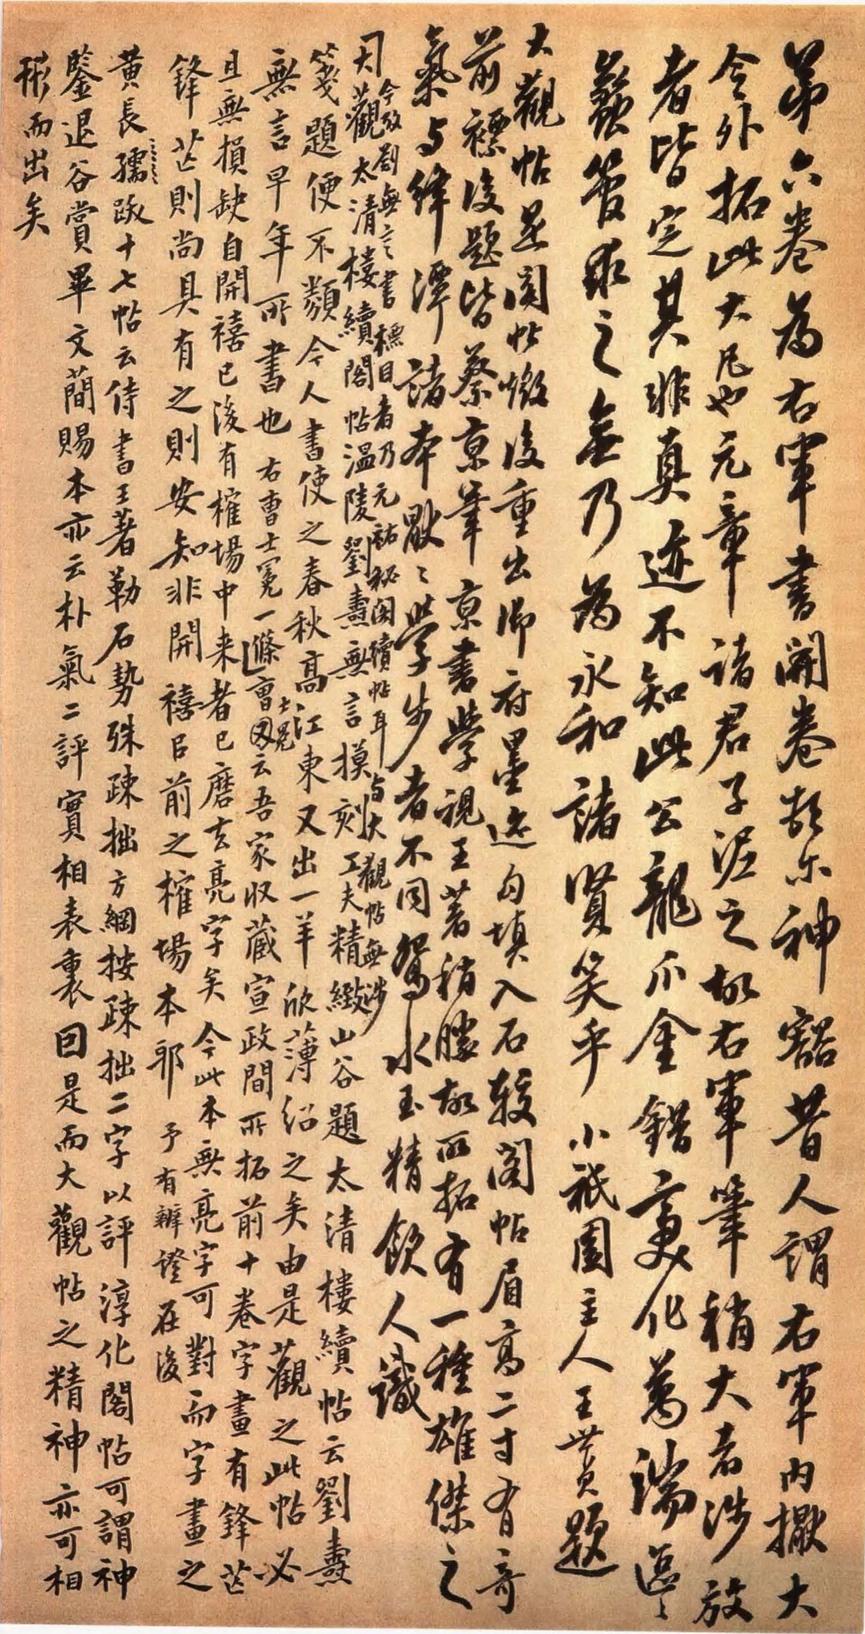 第六卷為右軍書開卷頓尔神豁昔人謂右軍内擫大
令外拓此大凡也元章諸君子泥之故右軍筆稍大者涉放
者皆定其非真迹不知此公龍爪金錯变化萬端區〻
蠡管求之無乃為永和諸賢笑乎 小祇園主人王世貞題
大觀帖是閣帖燬後重出御府墨迹勾填入石較閣帖眉高二寸有奇
前標後題皆蔡京筆京書學視王著稍勝故所拓有一種雄傑之
氣与絳潭諸本歇〻學步者不同鴛水玉精飲人識
今攷劉無言書標目者乃元祐秘閣續帖耳与大觀帖無涉
大觀太清樓續閣帖温陵劉燾無言摸刻工夫精緻山谷題太清樓續帖云劉燾
箋題便不類今人書使之春秋高江東又出一羊欣薄紹之矣由是觀之此帖必
無言早年所書也 右曹士冕一條 曹士冕又云吾家収藏宣政間所拓前十卷字畫有鋒芒
且無損缺自開禧已後有榷場中来者已磨去亮字矣今此本無亮字可對而字畫之
鋒芒則尚具有之則安知非開禧已前之榷場本耶 予有辨證在後
黄長孺跋十七帖云侍書王著勒石勢殊疎拙方綱按疎拙二字以評淳化閣帖可謂神
鑒退谷賞畢文蕳賜本亦云朴氣二評實相表裏回是而大觀帖之精神亦可相
形而出矣